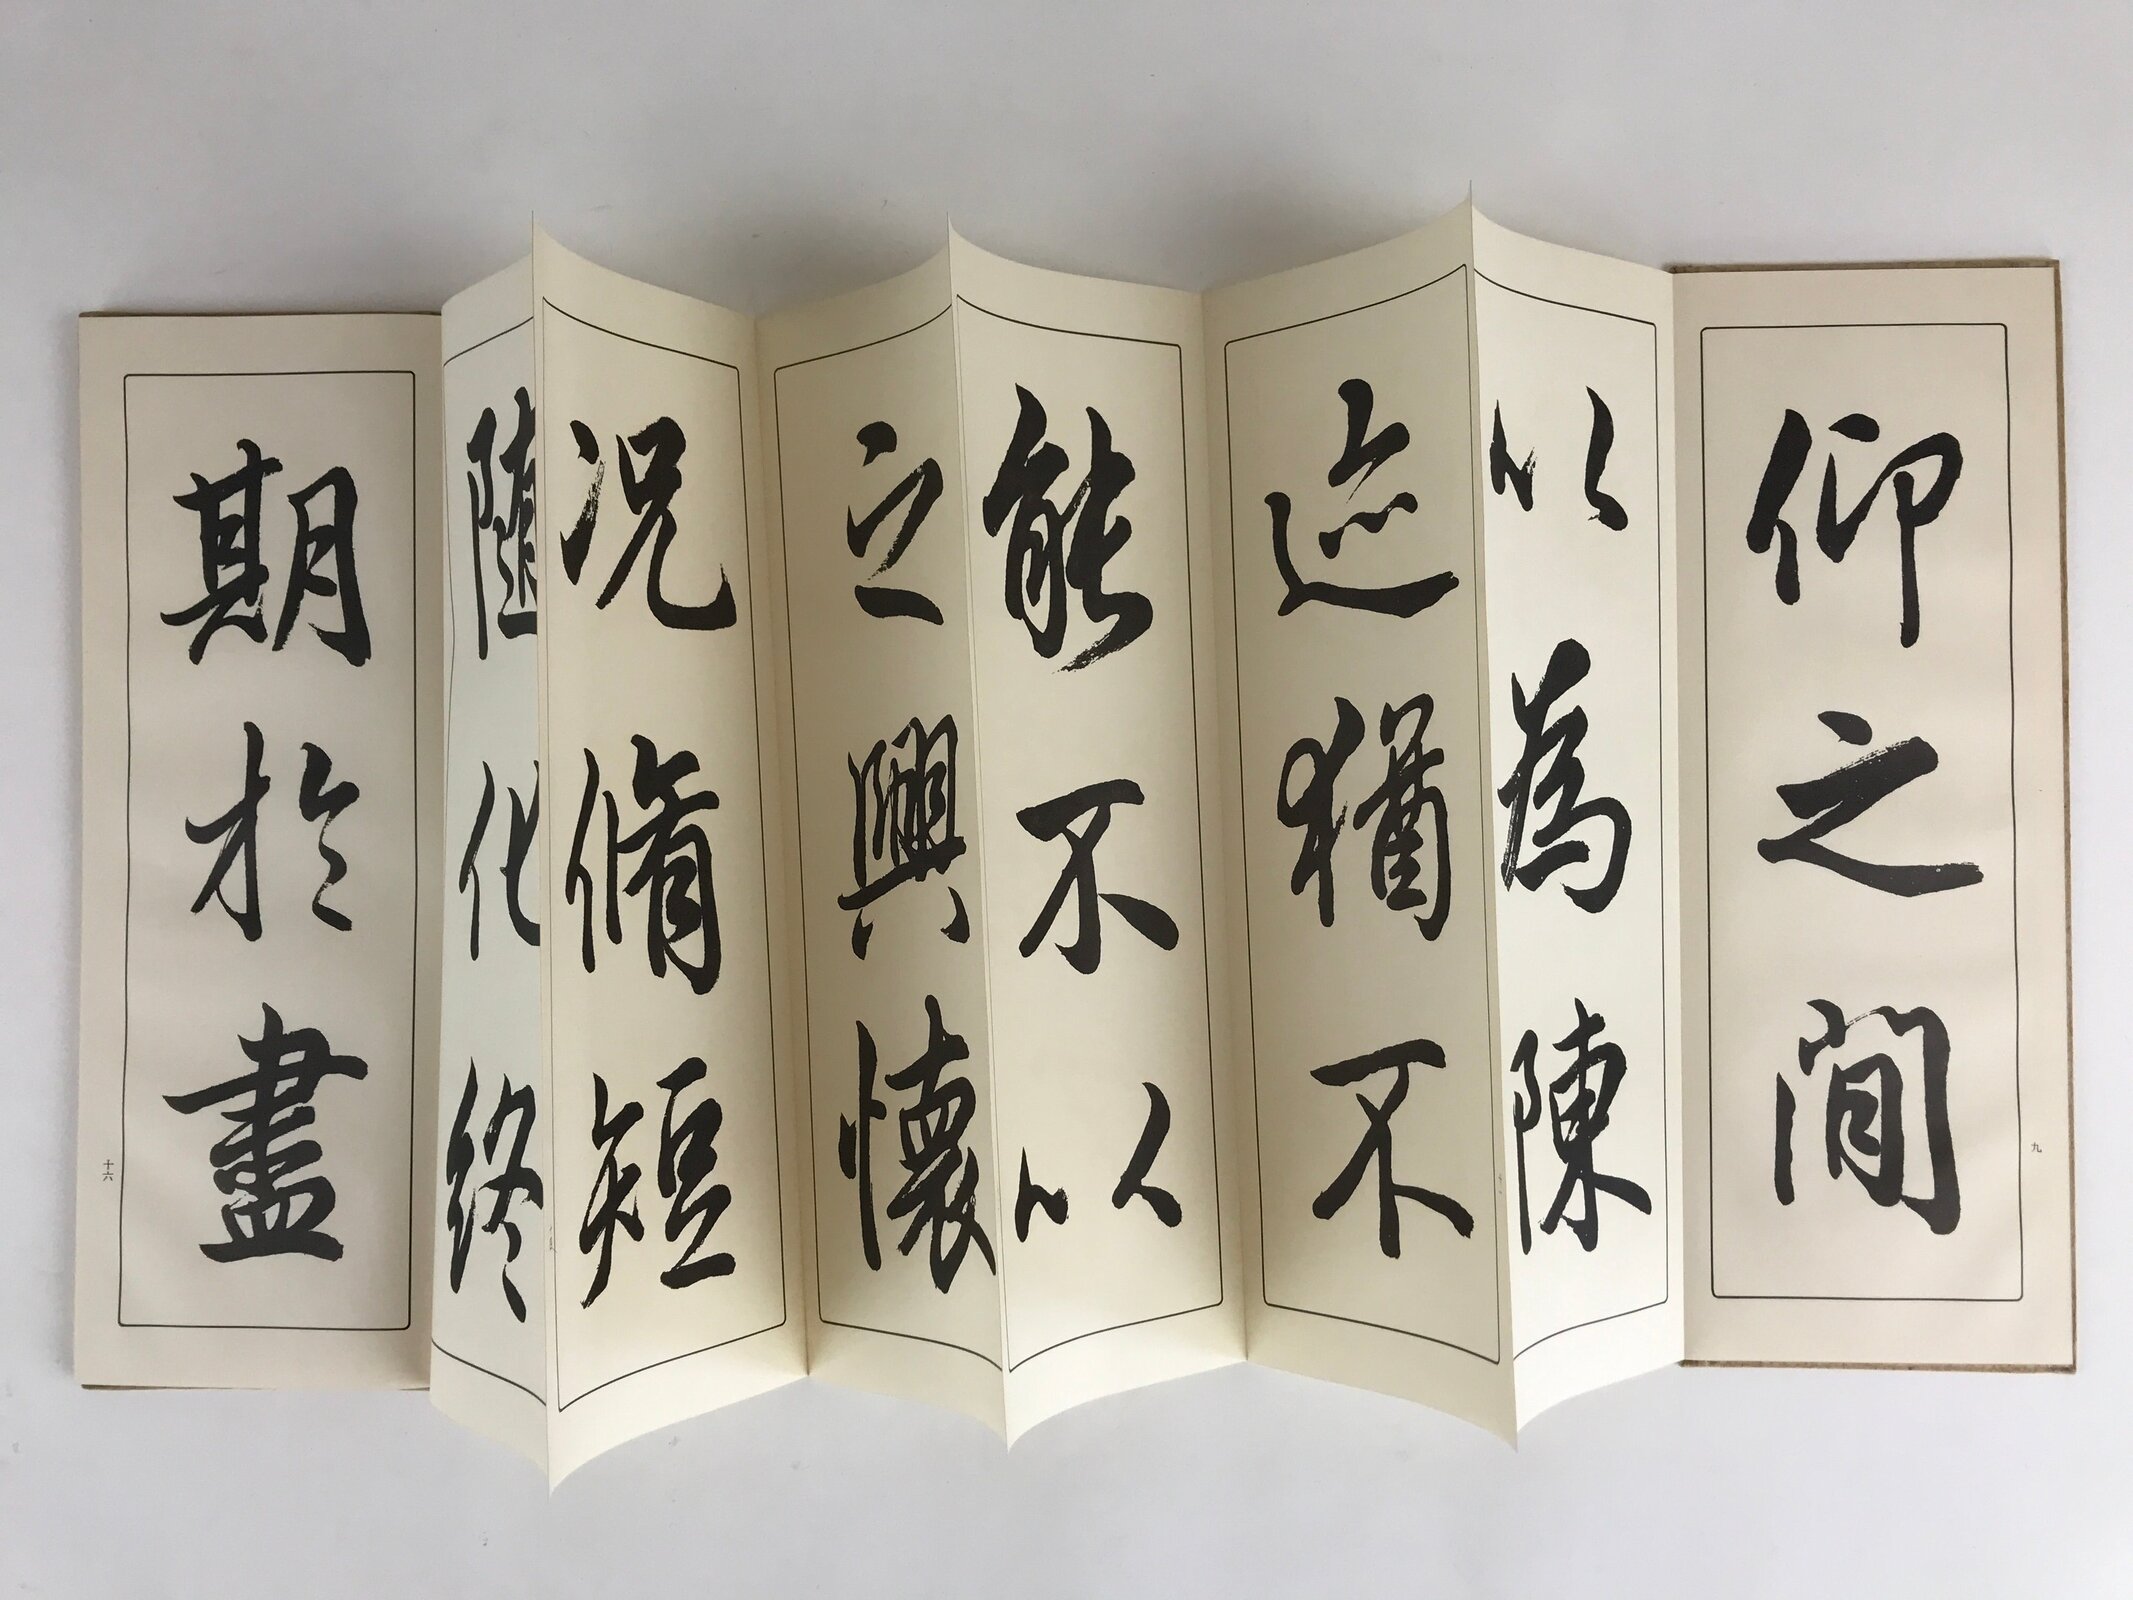 仰之間
九
以為陳
迹猶不
能不以
之興懷
況脩短
隨化終
期於盡
十六